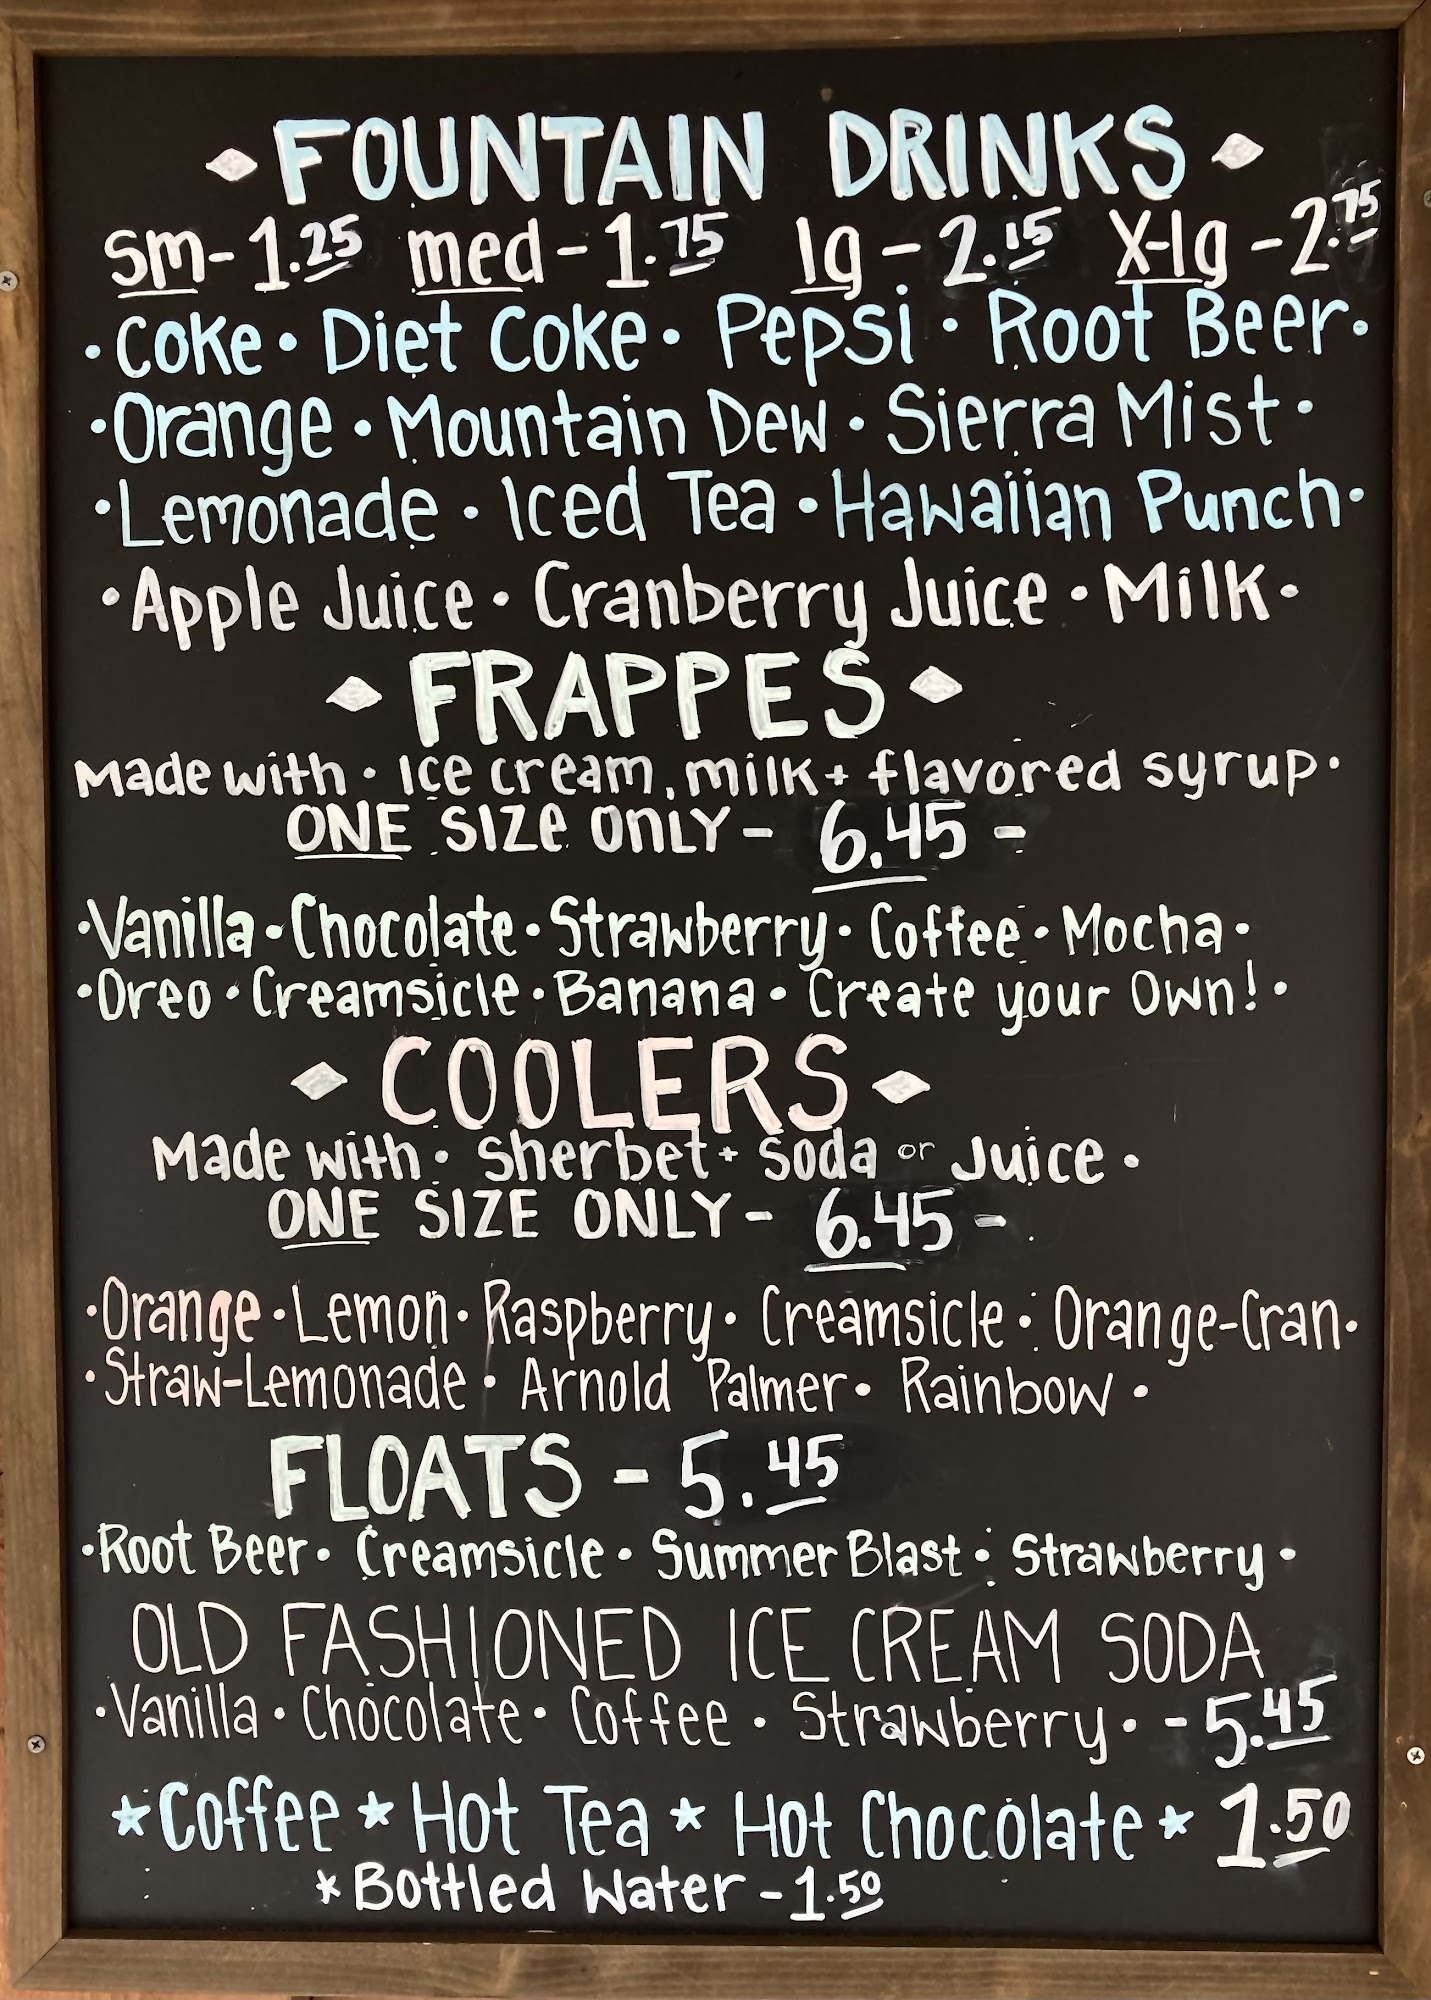 FOUNTAIN DRINKS
sm - 1.25 med - 1.75 lg - 2.15 X-lg - 2.75
• Coke • Diet Coke • Pepsi • Root Beer •
• Orange • Mountain Dew • Sierra Mist •
• Lemonade • Iced Tea • Hawaiian Punch •
• Apple Juice • Cranberry Juice • Milk •
FRAPPES
Made with • Ice cream, milk + flavored syrup •
ONE SIZE ONLY - 6.45 -
• Vanilla • Chocolate • Strawberry • Coffee • Mocha •
• Oreo • Creamsicle • Banana • Create your Own! •
COOLERS
Made with • Sherbet + Soda or Juice •
ONE SIZE ONLY - 6.45 -
• Orange • Lemon • Raspberry • Creamsicle • Orange-Cran •
• Straw-Lemonade • Arnold Palmer • Rainbow •
FLOATS - 5.45
• Root Beer • Creamsicle • Summer Blast • Strawberry •
OLD FASHIONED ICE CREAM SODA
• Vanilla • Chocolate • Coffee • Strawberry • - 5.45
* Coffee * Hot Tea * Hot Chocolate * 1.50
* Bottled Water - 1.50